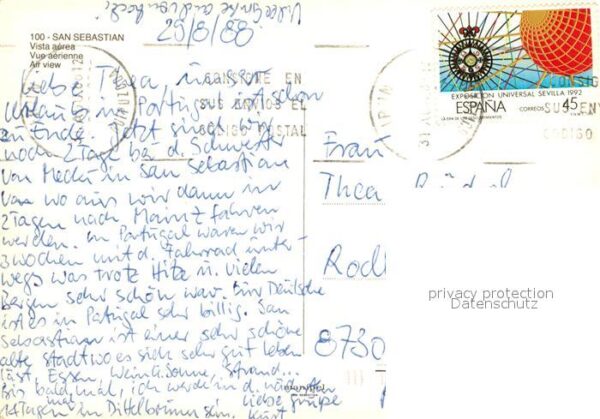 Viele Grüße auch von
29/8/88
100 - SAN SEBASTIAN
Vista aérea
Vue aérienne
Air view
EXPOSICION UNIVERSAL SEVILLA 1992
ESPAÑA CORREOS 45
CONSIGNE EN
SUS ENVIOS EL
CODIGO POSTAL
Liebe Thea, unser
Urlaub in Portugal ist schon
zu Ende. Jetzt sind wir
noch 2 Tage bei d. Schwester
von in San Sebastian
von wo aus wir dann in
2 Tagen nach Mainz fahren
werden. In Portugal waren wir
3 Wochen mit d. Fahrrad unter-
wegs was trotz Hitze u. vielen
Bergen sehr schön war. Für Deutsche
ist es in Portugal sehr billig. San
Sebastian ist eine sehr schöne
alte Stadt wo es sich sehr gut leben
läst. Essen, Wein, Sonne, Strand...
Bis bald mal, ich werde in d.
mal Liebe Grüße
Tagen in Dittelbrunn sein.
Frau
Thea
Rodl
8730
privacy protection
Datenschutz